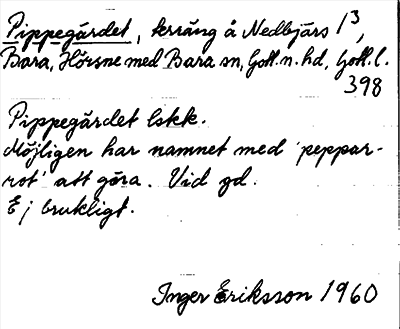 Pippegärdet, terräng å Nedbjärs 1³,
Bara, Hörsne med Bara sn, Gotl. n. hd, Gotl. l.
398
Pippegärdet lskk.
Möjligen har namnet med 'peppar-
rot' att göra. Vid gd.
Ej brukligt.
Inger Eriksson 1960